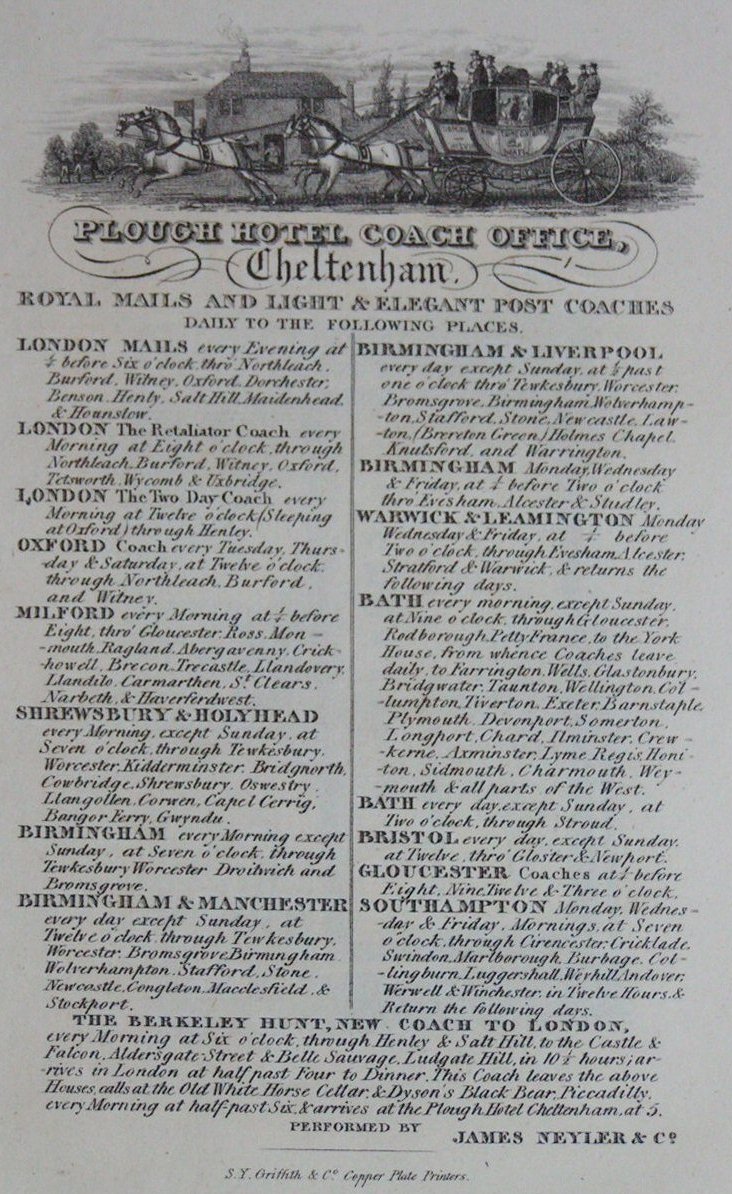 PLOUGH HOTEL COACH OFFICE,
Cheltenham.
ROYAL MAILS AND LIGHT & ELEGANT POST COACHES
DAILY TO THE FOLLOWING PLACES.
LONDON MAILS every Evening at
¼ before Six o'clock, thro' Northleach,
Burford, Witney, Oxford, Dorchester,
Benson, Henly, Salt Hill, Maidenhead,
& Hounslow.
LONDON The Retaliator Coach every
Morning at Eight o'clock, through
Northleach, Burford, Witney, Oxford,
Tetsworth, Wycomb & Uxbridge.
LONDON The Two Day Coach every
Morning at Twelve o'clock (Sleeping
at Oxford) through Henley.
OXFORD Coach every Tuesday, Thurs-
-day & Saturday, at Twelve o'clock,
through Northleach, Burford,
and Witney.
MILFORD every Morning at ¼ before
Eight, thro' Gloucester, Ross, Mon-
-mouth, Ragland, Abergavenny, Crick-
-howell, Brecon, Trecastle, Llandovery,
Llandilo, Carmarthen, St Clears,
Narbeth, & Haverferdwest.
SHREWSBURY & HOLYHEAD
every Morning, except Sunday, at
Seven o'clock, through Tewkesbury,
Worcester, Kidderminster, Bridgnorth,
Cowbridge, Shrewsbury, Oswestry,
Llangollen, Corwen, Capel Cerrig,
Bangor Ferry, Gwyndu.
BIRMINGHAM every Morning except
Sunday, at Seven o'clock, through
Tewkesbury Worcester Droitwich and
Bromsgrove.
BIRMINGHAM & MANCHESTER
every day except Sunday, at
Twelve o'clock, through Tewkesbury,
Worcester, Bromsgrove, Birmingham,
Wolverhampton, Stafford, Stone,
Newcastle, Congleton, Macclesfield, &
Stockport.
BIRMINGHAM & LIVERPOOL
every day except Sunday, at ½ past
one o'clock thro' Tewkesbury, Worcester,
Bromsgrove, Birmingham, Wolverhamp-
-ton, Stafford, Stone, Newcastle, Law-
-ton, (Brereton Green,) Holmes Chapel,
Knutsford, and Warrington.
BIRMINGHAM Monday, Wednesday
& Friday, at ¼ before Two o'clock
thro' Evisham, Alcester & Studley.
WARWICK & LEAMINGTON Monday
Wednesday & Friday, at ¼ before
Two o'clock, through Evesham, Alcester,
Stratford & Warwick, & returns the
following days.
BATH every morning, except Sunday,
at Nine o'clock, through Gloucester,
Rodborough, Petty France, to the York
House, from whence Coaches leave
daily, to Farrington, Wells, Glastonbury,
Bridgwater, Taunton, Wellington, Col-
-lumpton, Tiverton, Exeter, Barnstaple,
Plymouth, Devonport, Somerton,
Longport, Chard, Ilminster, Crew-
-kerne, Axminster, Lyme Regis, Honi-
-ton, Sidmouth, Charmouth, Wey-
-mouth & all parts of the West.
BATH every day, except Sunday, at
Two o'clock, through Stroud.
BRISTOL every day, except Sunday,
at Twelve, thro' Gloster & Newport.
GLOUCESTER Coaches at ¼ before
Eight, Nine, Twelve & Three o'clock,
SOUTHAMPTON Monday, Wednes-
-day & Friday, Mornings, at Seven
o'clock, through Cirencester, Cricklade,
Swindon, Marlborough, Burbage, Col-
-lingburn, Luggershall, Weyhill, Andover,
Werwell & Winchester, in Twelve Hours, &
Return the following days.
THE BERKELEY HUNT, NEW COACH TO LONDON,
every Morning at Six o'clock, through Henley & Salt Hill, to the Castle &
Falcon, Aldersgate Street & Belle Sauvage, Ludgate Hill, in 10½ hours; ar-
-rives in London at half past Four to Dinner. This Coach leaves the above
Houses, calls at the Old White Horse Cellar, & Dyson's Black Bear, Piccadilly,
every Morning at half-past Six, & arrives at the Plough Hotel Cheltenham, at 5.
PERFORMED BY
JAMES NEYLER & Co
S.Y. Griffith & Co Copper Plate Printers.